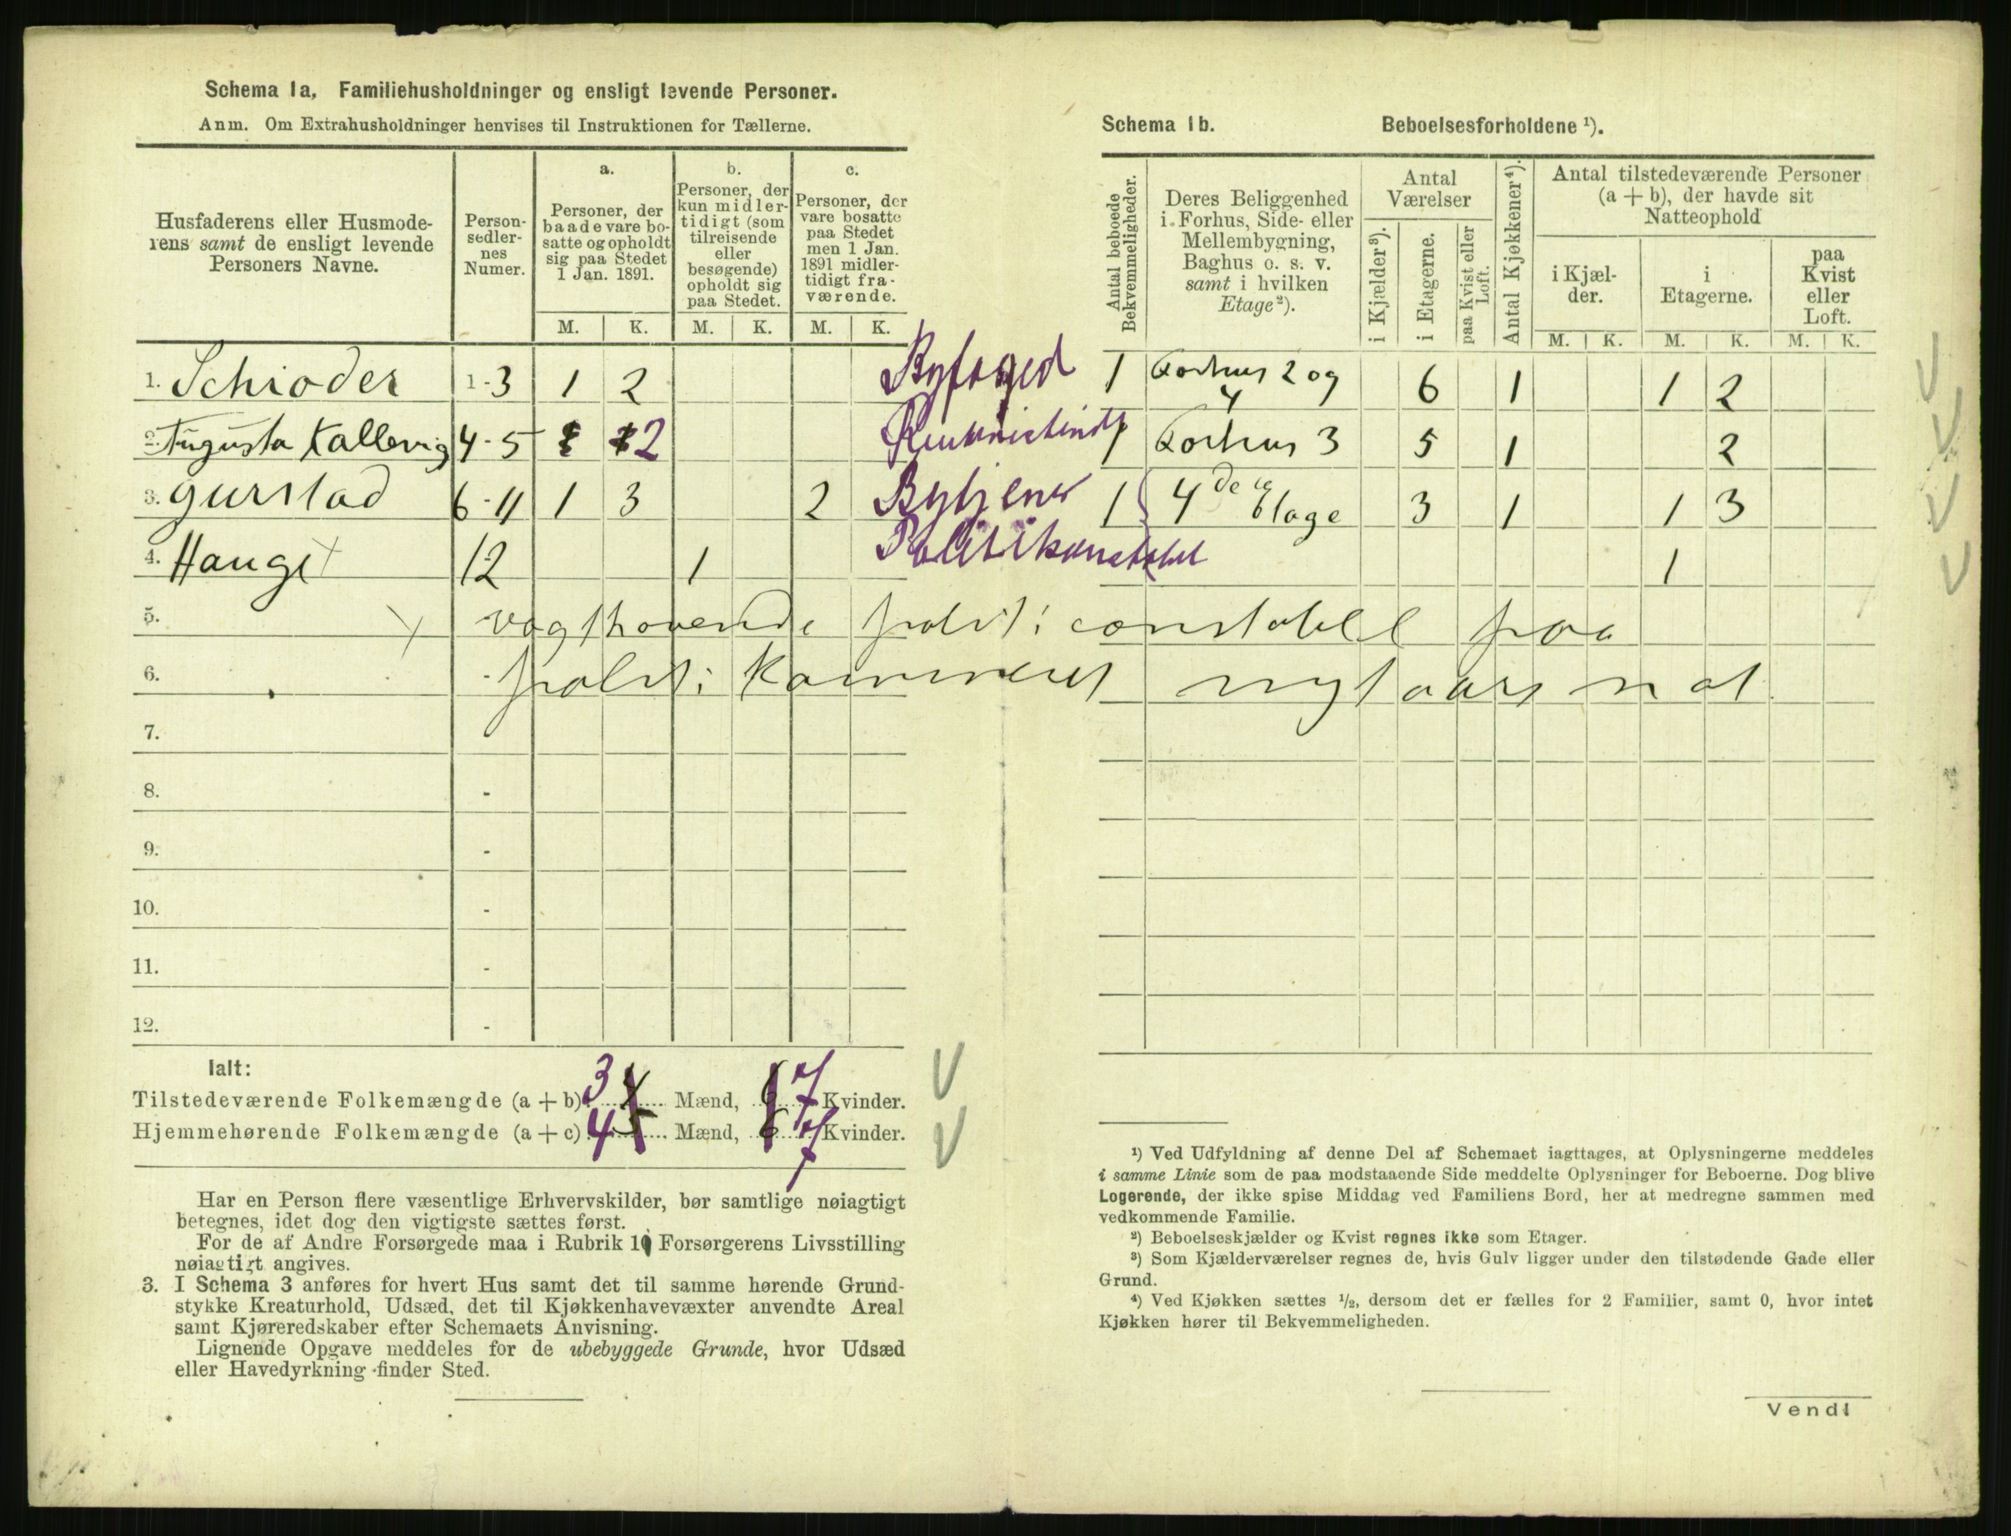 Schema 1a. Familiehusholdninger og ensligt levende Personer.
Anm. Om Extrahusholdninger henvises til Instruktionen for Tællerne.
Husfaderens eller Husmode-
rens samt de ensligt levende
Personers Navne.
Person-
sedler-
nes
Numer.
a.
Personer, der
baade vare bo-
satte og opholdt
sig paa Stedet
1 Jan. 1891.
b.
Personer, der
kun midler-
tidigt (som
tilreisende
eller
besøgende)
opholdt sig
paa Stedet.
c.
Personer, der
vare bosatte
paa Stedet
men 1 Jan.
1891 midler-
tidigt fra-
værende.
M. K. M. K. M. K.
1. Schiøder 1-3 1 2 Byfoged
2. Augusta Kallevig 4-5 2
3. Gurstad 6-11 1 3 2 Bytjener
4. Hauge 12 1 Politikonstabel
5. vagthavende politi constabel paa
6. - politi Kammeret nytaarsnat.
7.
8. -
9. -
10. -
11. -
12. -
Ialt:
Tilstedeværende Folkemængde (a + b) 3 4 Mænd, 6 7 Kvinder.
Hjemmehørende Folkemængde (a + c) 4 5 Mænd, 6 7 Kvinder.
Har en Person flere væsentlige Erhvervskilder, bør samtlige nøiagtigt
betegnes, idet dog den vigtigste sættes først.
For de af Andre Forsørgede maa i Rubrik 10 Forsørgerens Livsstilling
nøiagtigt angives.
3. I Schema 3 anføres for hvert Hus samt det til samme hørende Grund-
stykke Kreaturhold, Udsæd, det til Kjøkkenhavevæxter anvendte Areal
samt Kjøreredskaber efter Schemaets Anvisning.
Lignende Opgave meddeles for de ubebyggede Grunde, hvor Udsæd
eller Havedyrkning finder Sted.
Schema 1b. Beboelsesforholdene ¹).
Antal beboede
Bekvemmeligheder.
Deres Beliggenhed
i Forhus, Side- eller
Mellembygning,
Baghus o. s. v.
samt i hvilken
Etage²).
Antal
Værelser
i Kjælder³).
i Etagerne.
paa Kvist eller
Loft.
Antal Kjøkkener⁴).
Antal tilstedeværende Personer
(a + b), der havde sit
Natteophold
i Kjæl-
der.
i
Etagerne.
paa
Kvist
eller
Loft.
M. K. M. K. M. K.
1 Forhus 2 og 4 6 1 1 2
1 Forhus 3 5 1 2
1 4de Etage 3 1 1 3
1
¹) Ved Udfyldning af denne Del af Schemaet iagttages, at Oplysningerne meddeles
i samme Linie som de paa modstaaende Side meddelte Oplysninger for Beboerne. Dog blive
Logerende, der ikke spise Middag ved Familiens Bord, her at medregne sammen med
vedkommende Familie.
²) Beboelseskjælder og Kvist regnes ikke som Etager.
³) Som Kjælderværelser regnes de, hvis Gulv ligger under den tilstødende Gade eller
Grund.
⁴) Ved Kjøkken sættes ½, dersom det er fælles for 2 Familier, samt 0, hvor intet
Kjøkken hører til Bekvemmeligheden.
Vend!